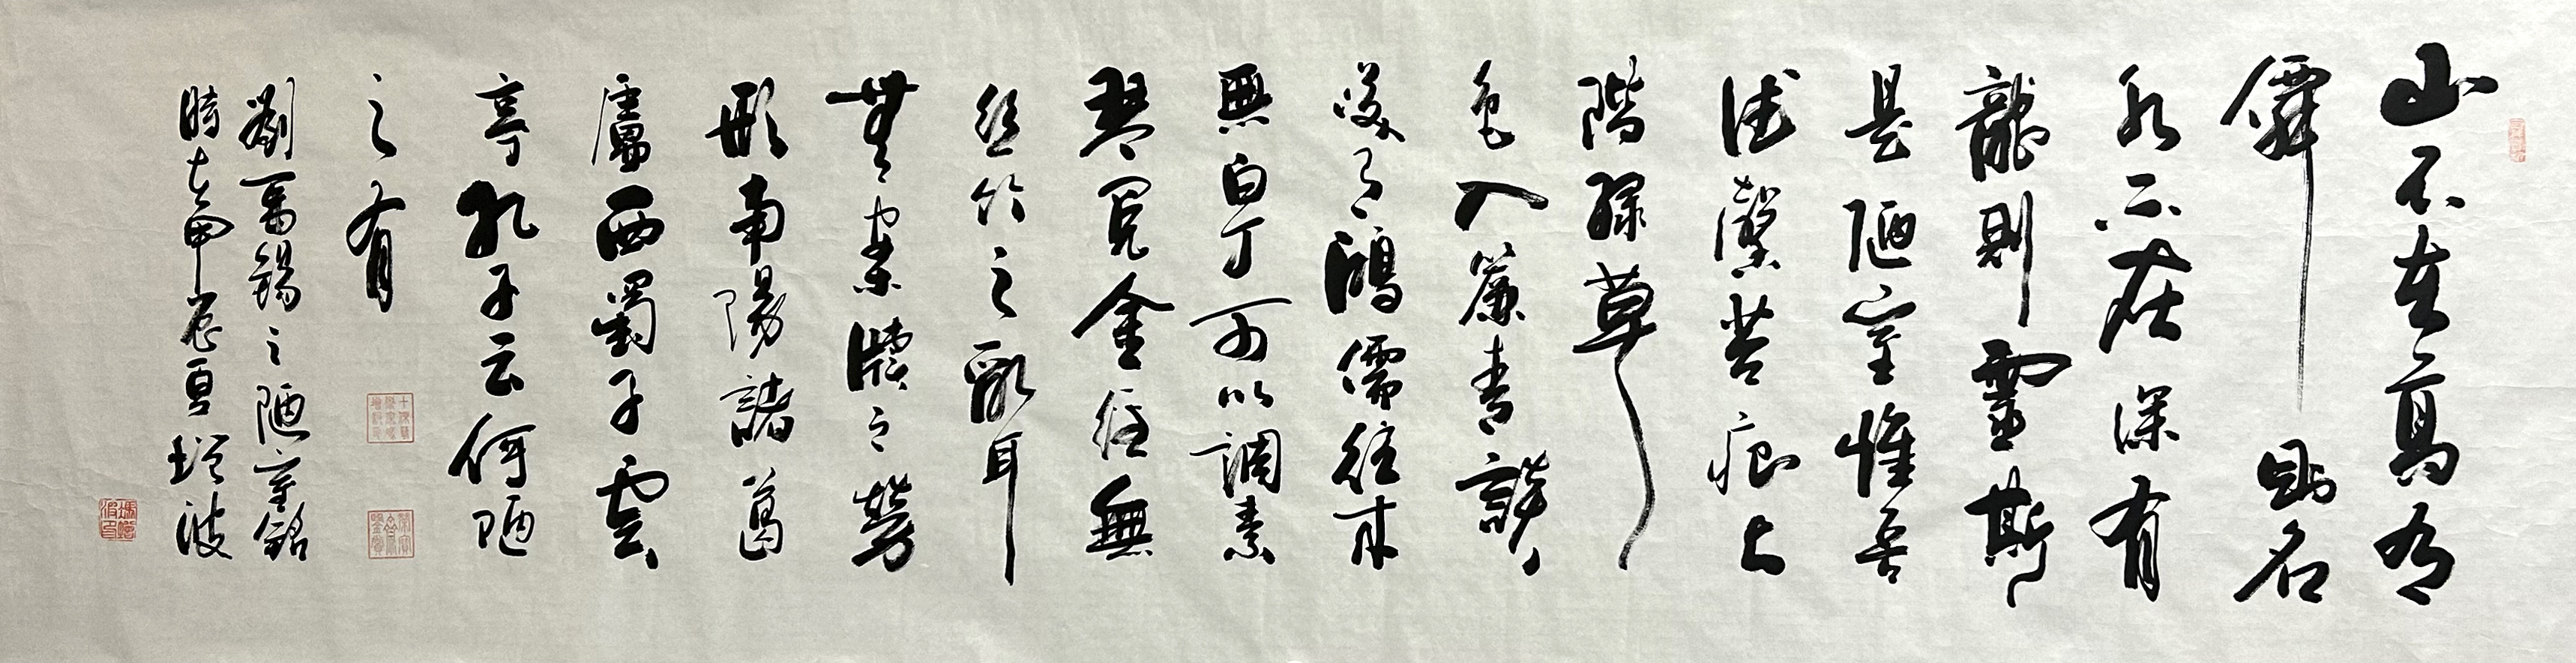 山不在高有
僊則名
水不在深有
龍則靈斯
是陋室惟吾
德馨苔痕上
階綠草
色入簾青談
笑有鴻儒往來
無白丁可以調素
琴閱金經無
絲竹之亂耳
無案牘之勞
形南陽諸葛
廬西蜀子雲
亭孔子云何陋
之有
劉禹錫之陋室銘
時在甲辰夏增波